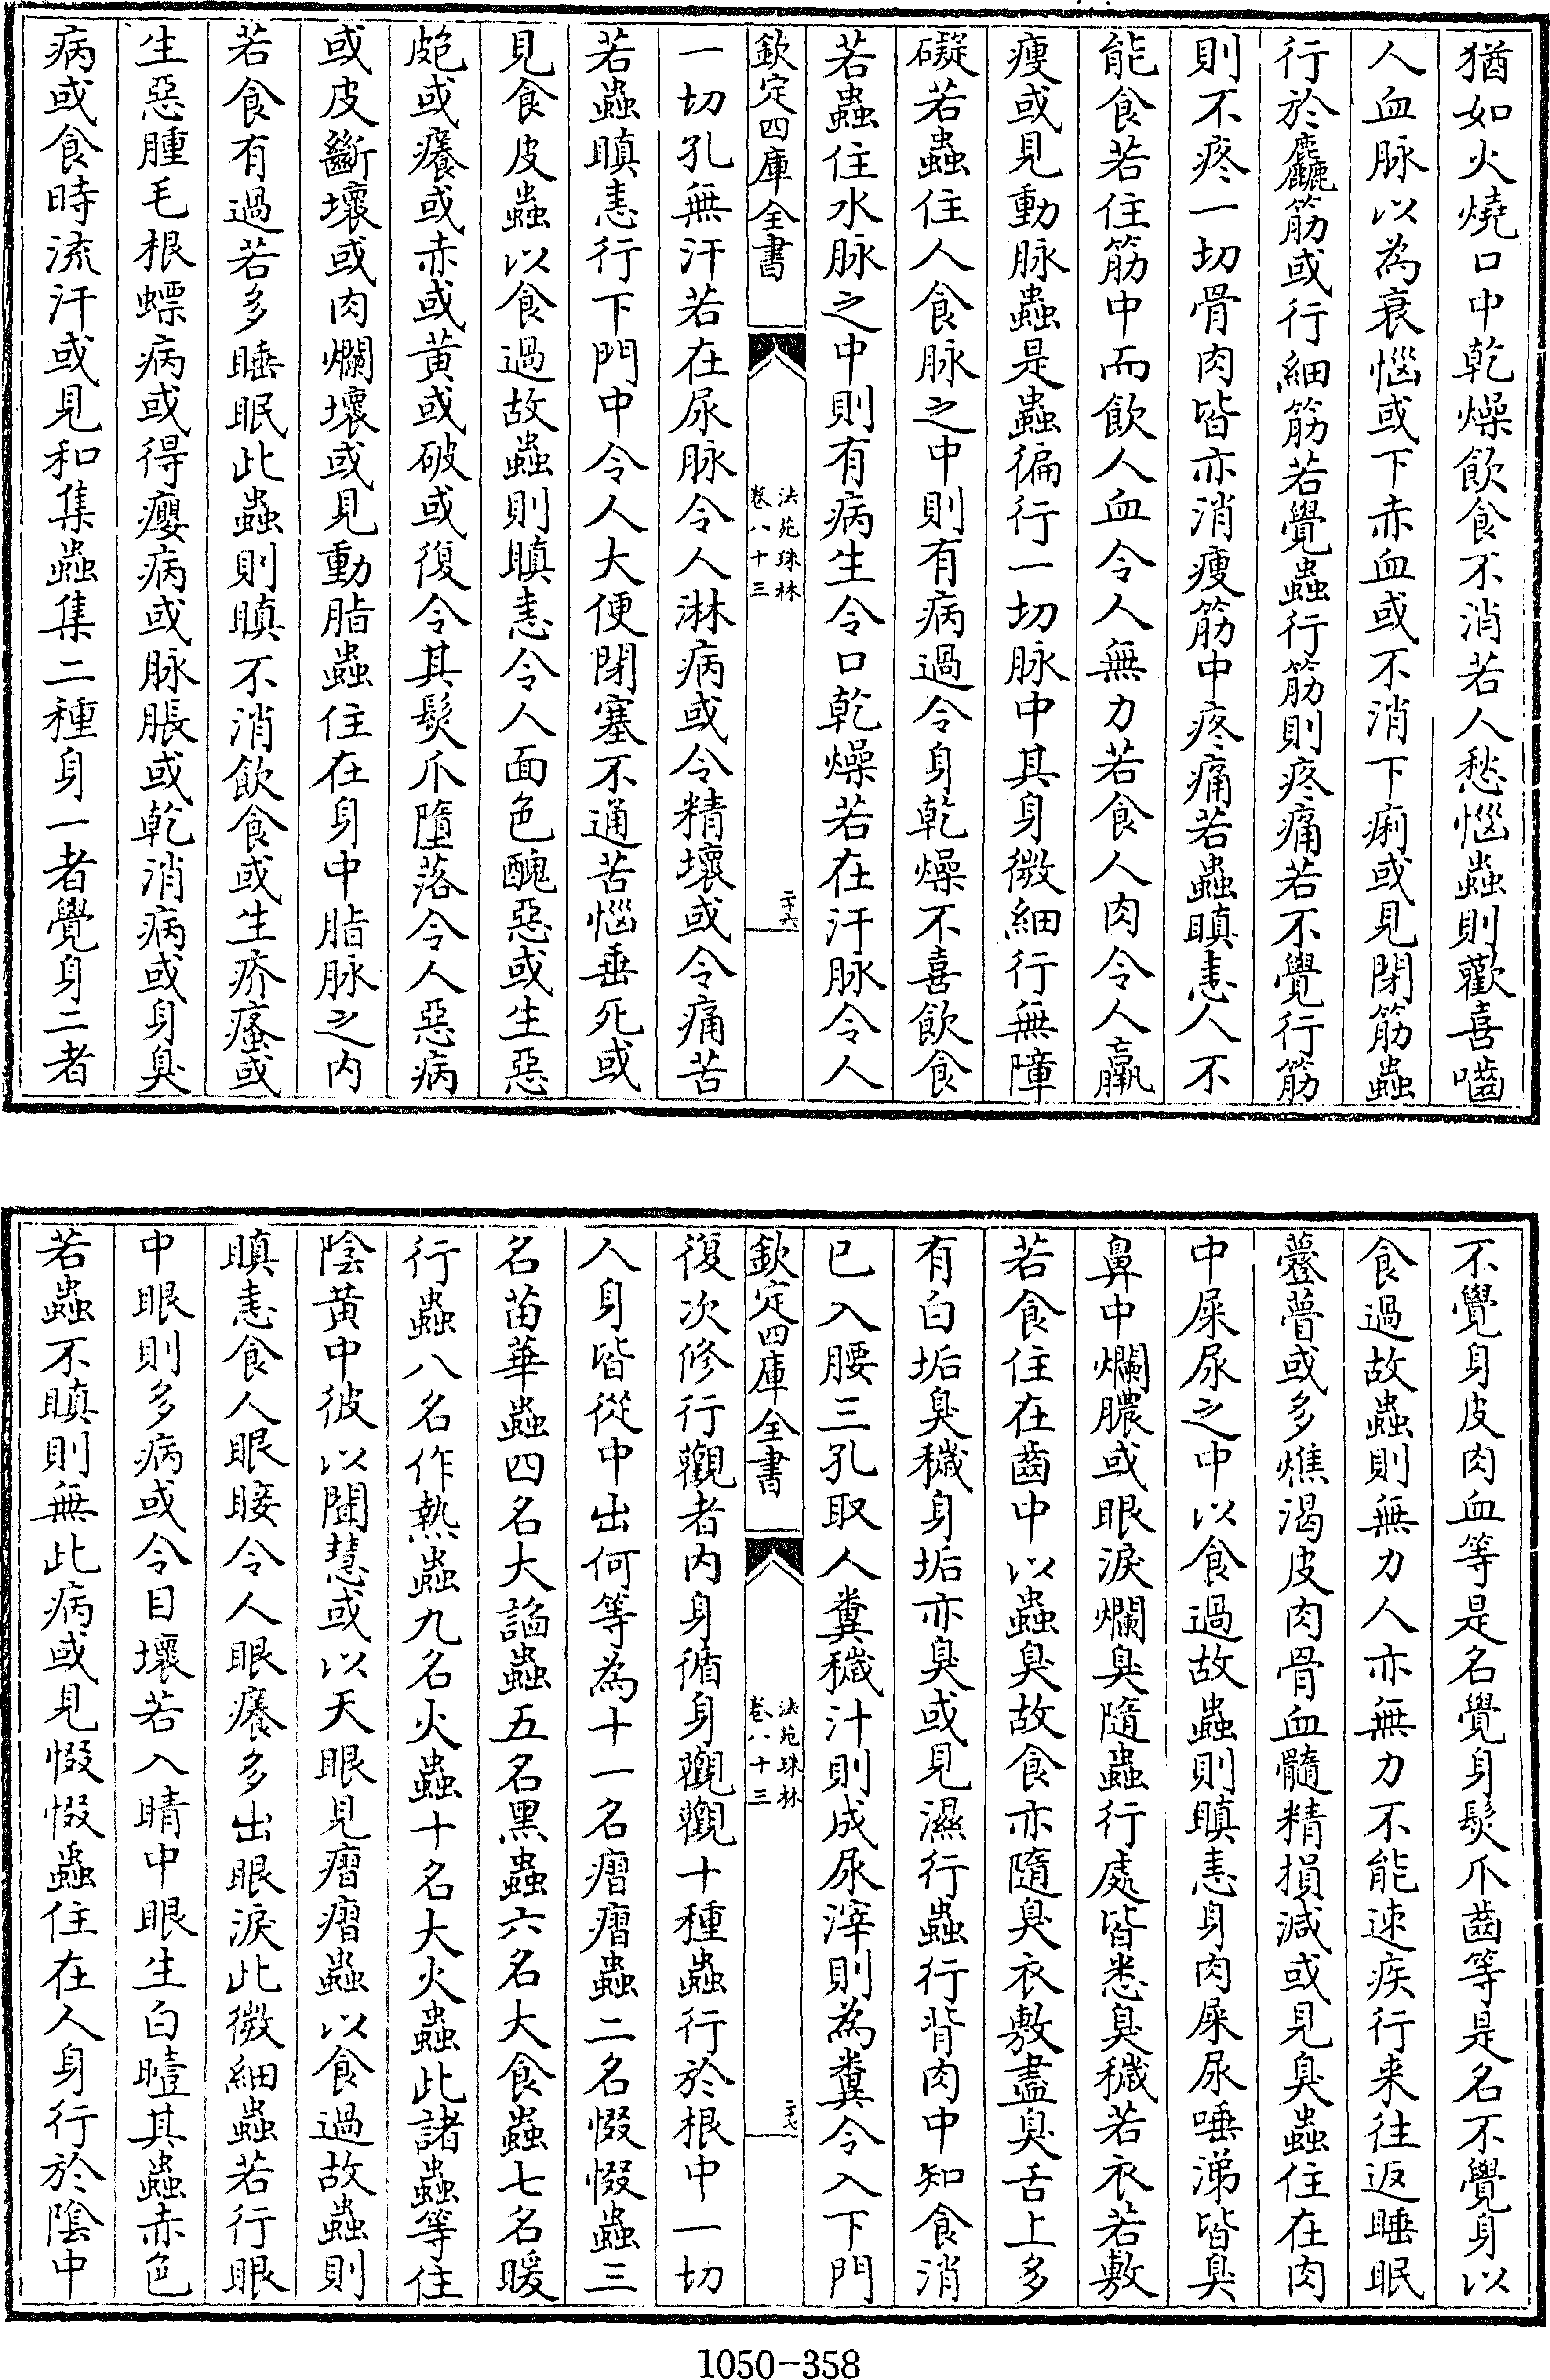 猶如火燒口中乾燥飲食不消若人愁惱蟲則歡喜嚙
人血脉以為衰惱或下赤血或不消下痢或見閉筋蟲
行於麤筋或行細筋若覺蟲行筋則疼痛若不覺行筋
則不疼一切骨肉皆亦消瘦筋中疼痛若蟲瞋恚人不
能食若住筋中而飲人血令人無力若食人肉令人羸
瘦或見動脉蟲是蟲徧行一切脉中其身微細行無障
礙若蟲住人食脉之中則有病過令身乾燥不喜飲食
若蟲住水脉之中則有病生令口乾燥若在汗脉令人
欽定四庫全書
法苑珠林
卷八十三
二十六
一切孔無汗若在尿脉令人淋病或令精壞或令痛苦
若蟲瞋恚行下門中令人大便閉塞不通苦惱垂死或
見食皮蟲以食過故蟲則瞋恚令人面色醜惡或生惡
皰或癢或赤或黃或破或復令其髮爪墮落令人惡病
或皮斷壞或肉爛壞或見動脂蟲住在身中脂脉之內
若食有過若多睡眠此蟲則瞋不消飲食或生疥瘙或
生惡腫毛根螵病或得癭病或脉脹或乾消病或身臭
病或食時流汗或見和集蟲集二種身一者覺身二者
不覺身皮肉血等是名覺身髮爪齒等是名不覺身以
食過故蟲則無力人亦無力不能速疾行来往返睡眠
䠯瞢或多燋渴皮肉骨血髓精損減或見臭蟲住在肉
中屎尿之中以食過故蟲則瞋恚身肉屎尿唾涕皆臭
鼻中爛膿或眼淚爛臭隨蟲行處皆悉臭穢若衣若敷
若食住在齒中以蟲臭故食亦隨臭衣敷盡臭舌上多
有白垢臭穢身垢亦臭或見濕行蟲行背肉中知食消
已入腰三孔取人糞穢汁則成尿滓則為糞令入下門
欽定四庫全書
法苑珠林
卷八十三
二十七
復次修行觀者內身循身觀觀十種蟲行於根中一切
人身皆從中出何等為十一名㿇㿇蟲二名惙惙蟲三
名苗華蟲四名大謟蟲五名黑蟲六名大食蟲七名暖
行蟲八名作熱蟲九名火蟲十名大火蟲此諸蟲等住
陰黃中彼以聞慧或以天眼見㿇㿇蟲以食過故蟲則
瞋恚食人眼睫令人眼癢多出眼淚此微細蟲若行眼
中眼則多病或令目壞若入睛中眼生白曀其蟲赤色
若蟲不瞋則無此病或見惙惙蟲住在人身行於陰中
1050-358